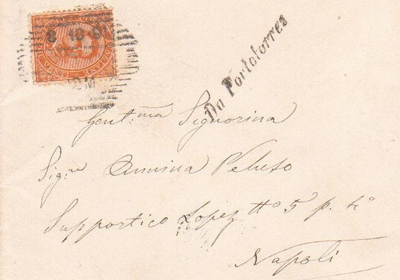 8 10 9
Da Portotorres
Gent.ma Signorina
Sig.na Annina Peluso
Supportico Lopez No 5 p. 4o
Napoli